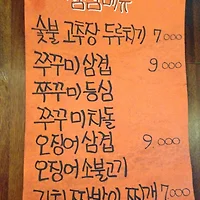 점심메뉴
숯불 고추장 두루치기 7,000
쭈꾸미 삼겹 9,000
쭈꾸미 등심
쭈꾸미 차돌
오징어 삼겹 9,000
오징어 소불고기
김치 짜박이 찌개 7,000